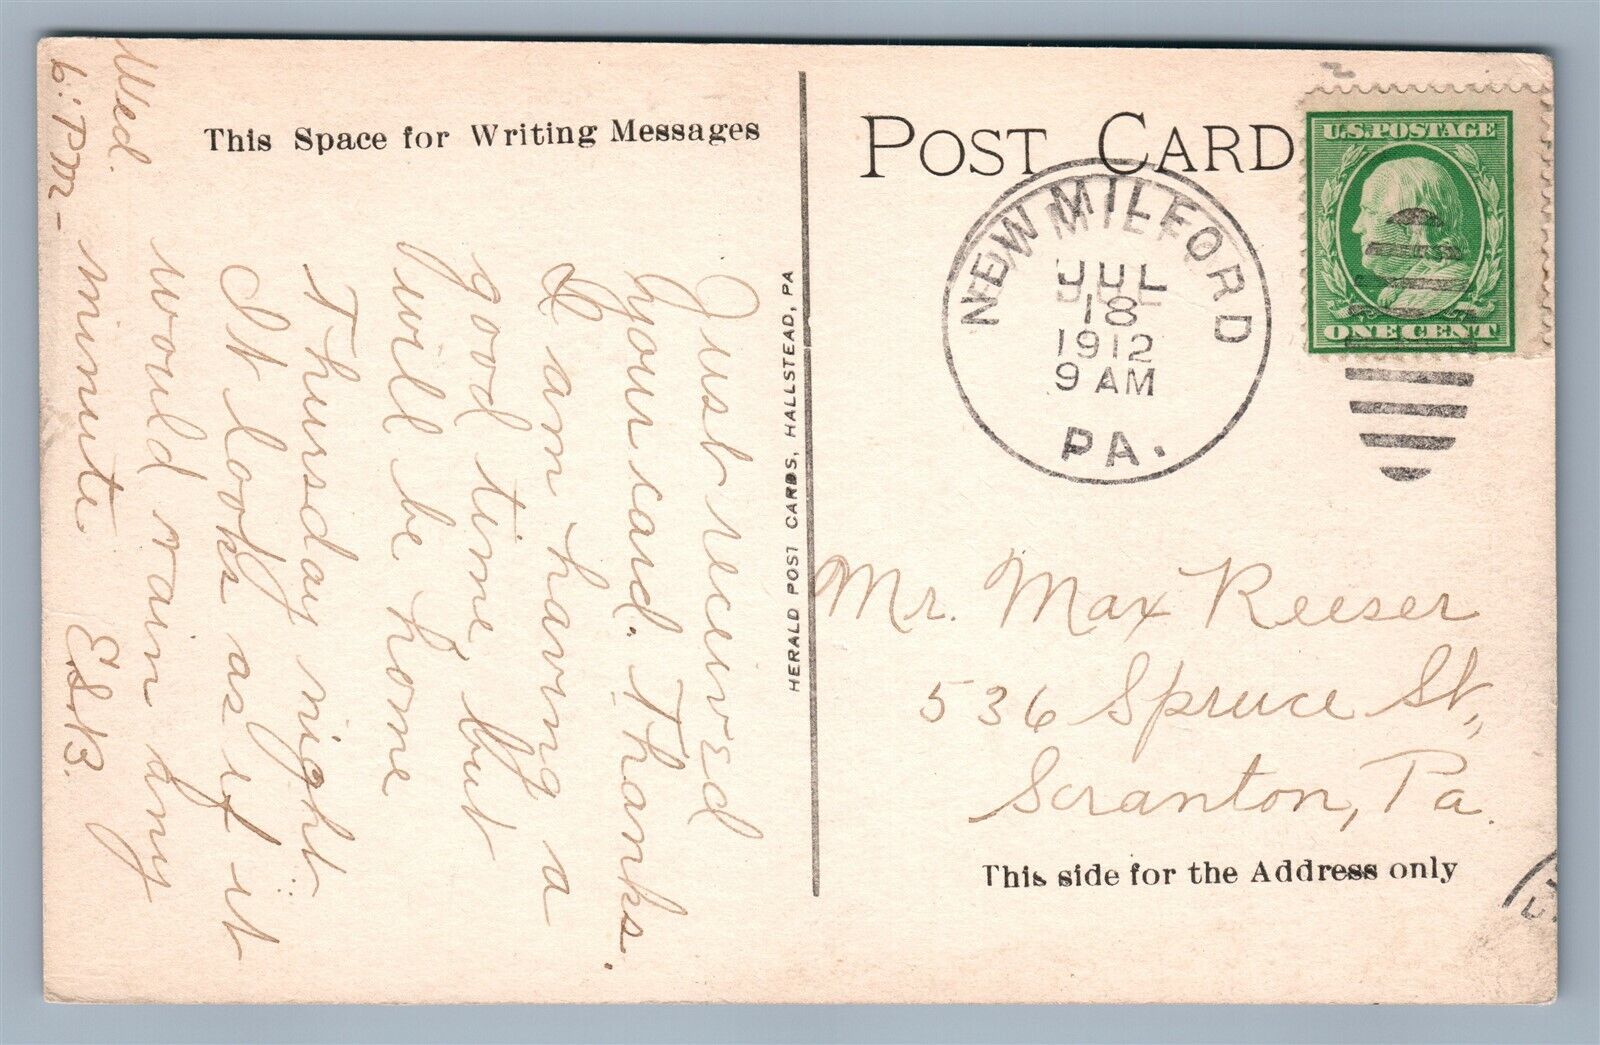 This Space for Writing Messages
Wed.
6: P.M-
Just recieved
your card. Thanks.
I am having a
good time, but
will be home
Thursday night
It looks as if it
would rain any
minute.
E.S.B.
HERALD POST CARDS, HALLSTEAD, PA
POST CARD
U.S. POSTAGE
ONE CENT
NEW MILFORD
JUL
18
1912
9 AM
PA.
Mr. Max Reeser
536 Spruce St,
Scranton, Pa.
This side for the Address only